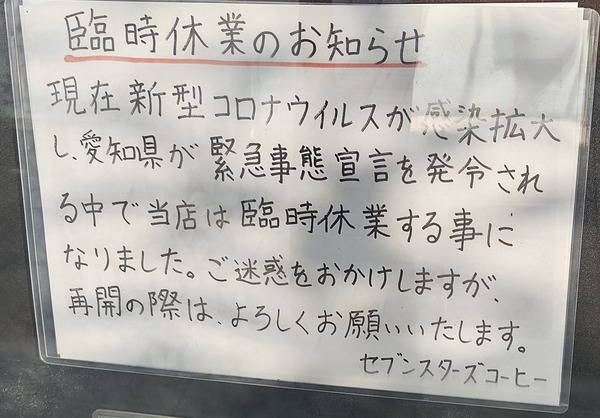 臨時休業のお知らせ
現在新型コロナウイルスが感染拡大
し、愛知県が緊急事態宣言を発令され
る中で当店は臨時休業する事に
なりました。ご迷惑をおかけしますが、
再開の際は、よろしくお願いいたします。
セブンスターズコーヒー